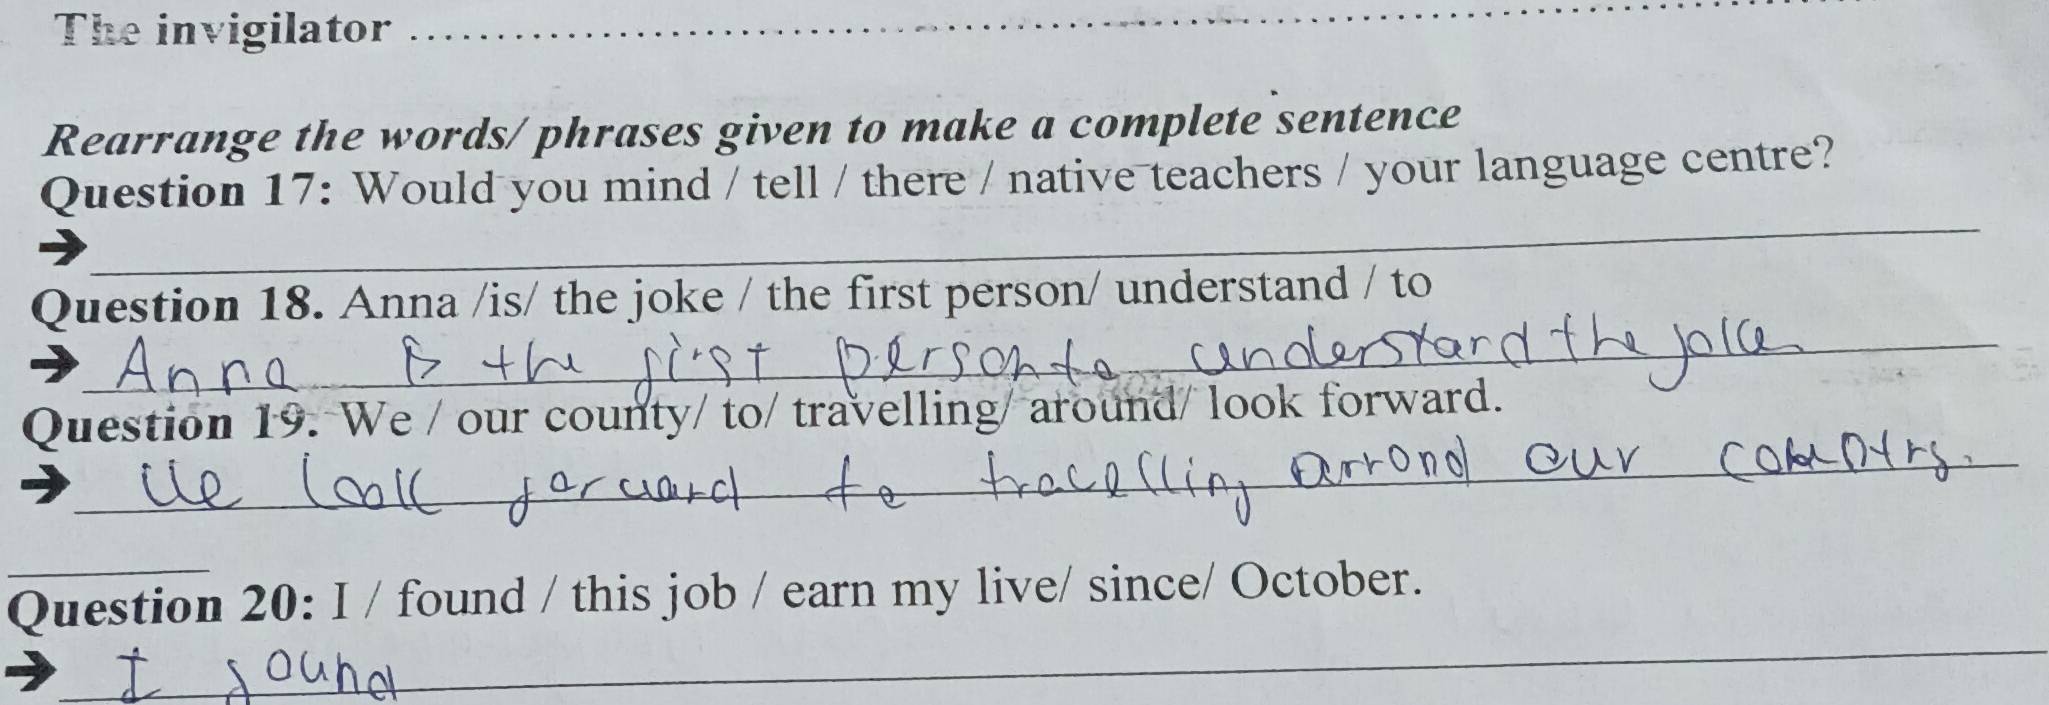 The invigilator ........................................................................
Rearrange the words/ phrases given to make a complete sentence
Question 17: Would you mind / tell / there / native teachers / your language centre?
➔
Question 18. Anna /is/ the joke / the first person/ understand / to
➔ Anna is the first person to understand the joke
Question 19. We / our county/ to/ travelling/ around/ look forward.
➔ We look forward to travelling arrond our country.
Question 20: I / found / this job / earn my live/ since/ October.
➔ I found